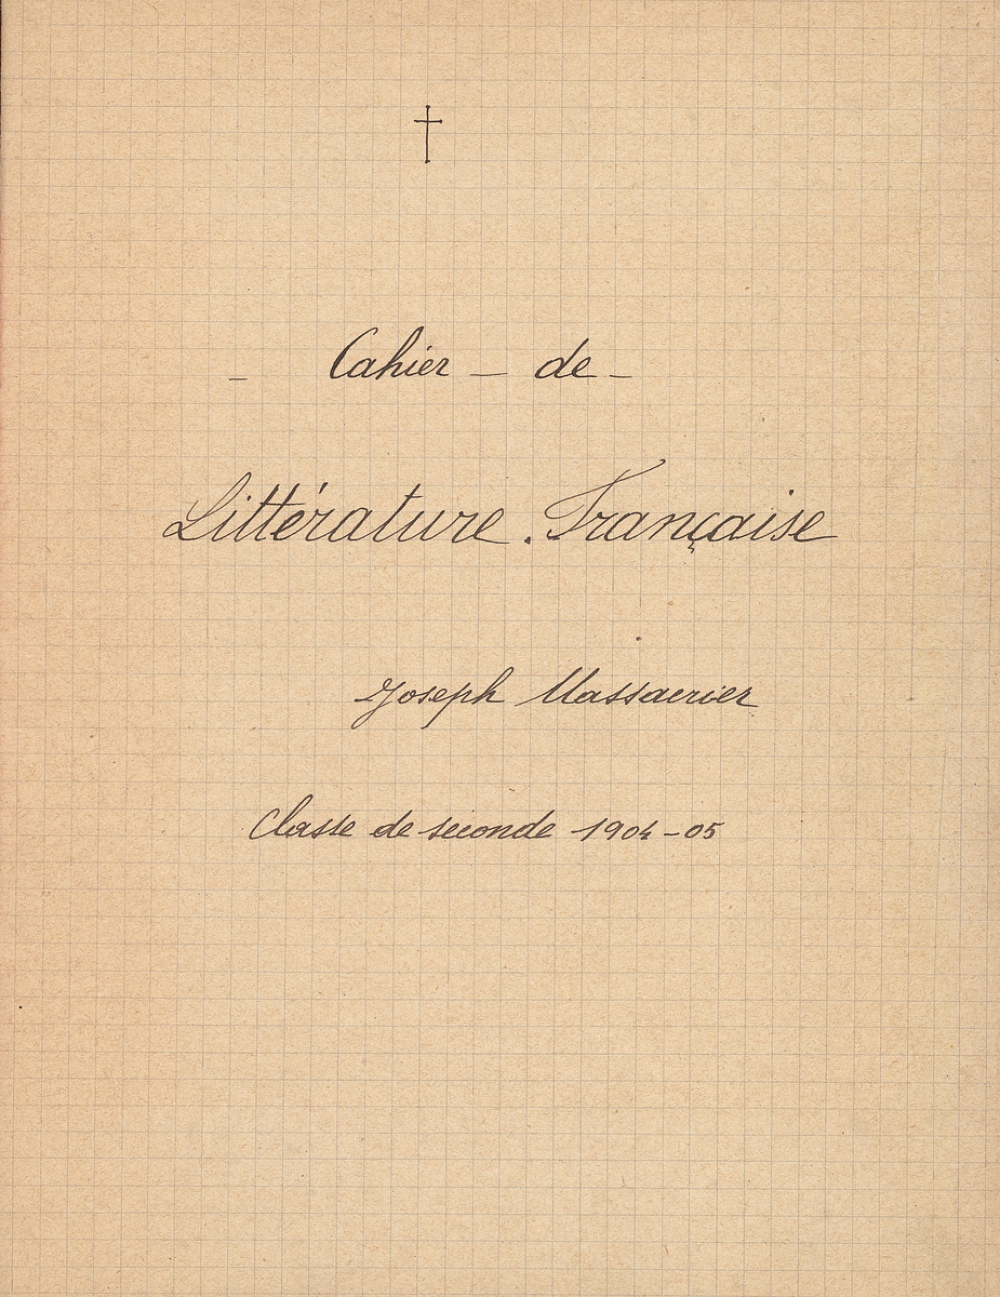 †
- Cahier - de -
Littérature . Française
Joseph Massacrier
Classe de seconde 1904-05